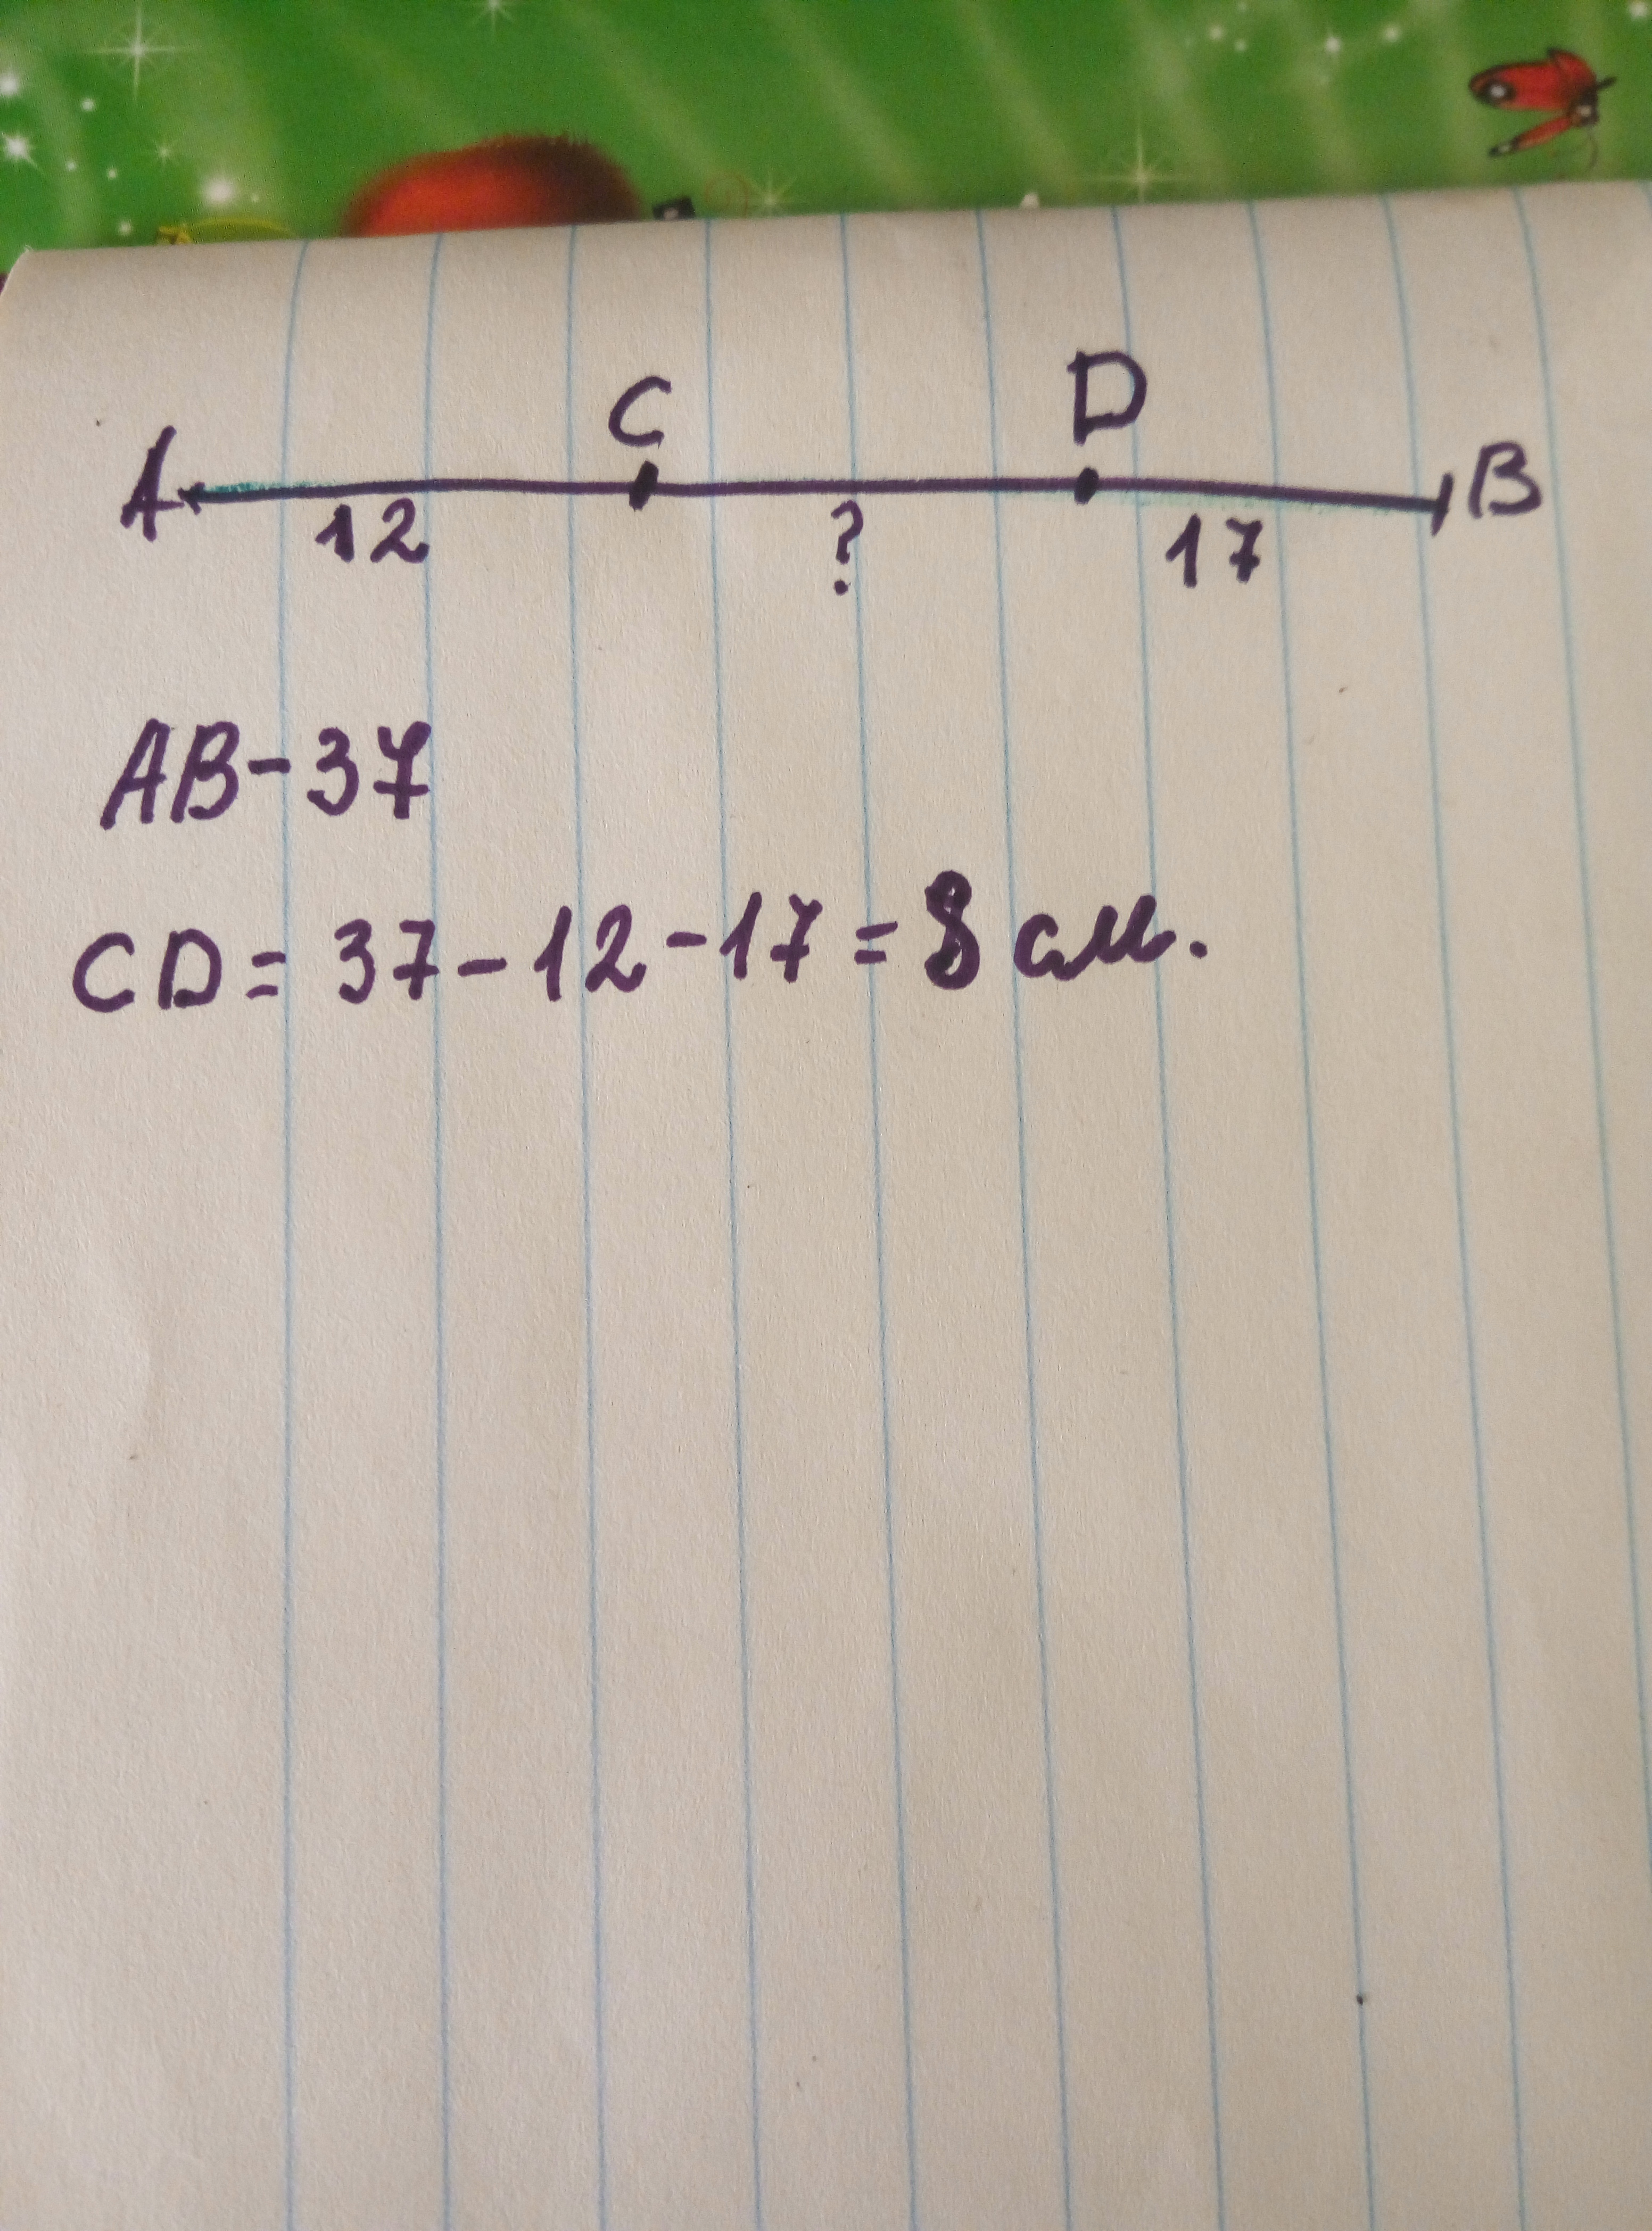 C D
A B
12 ? 17
AB-37
CD= 37-12-17=8 см.